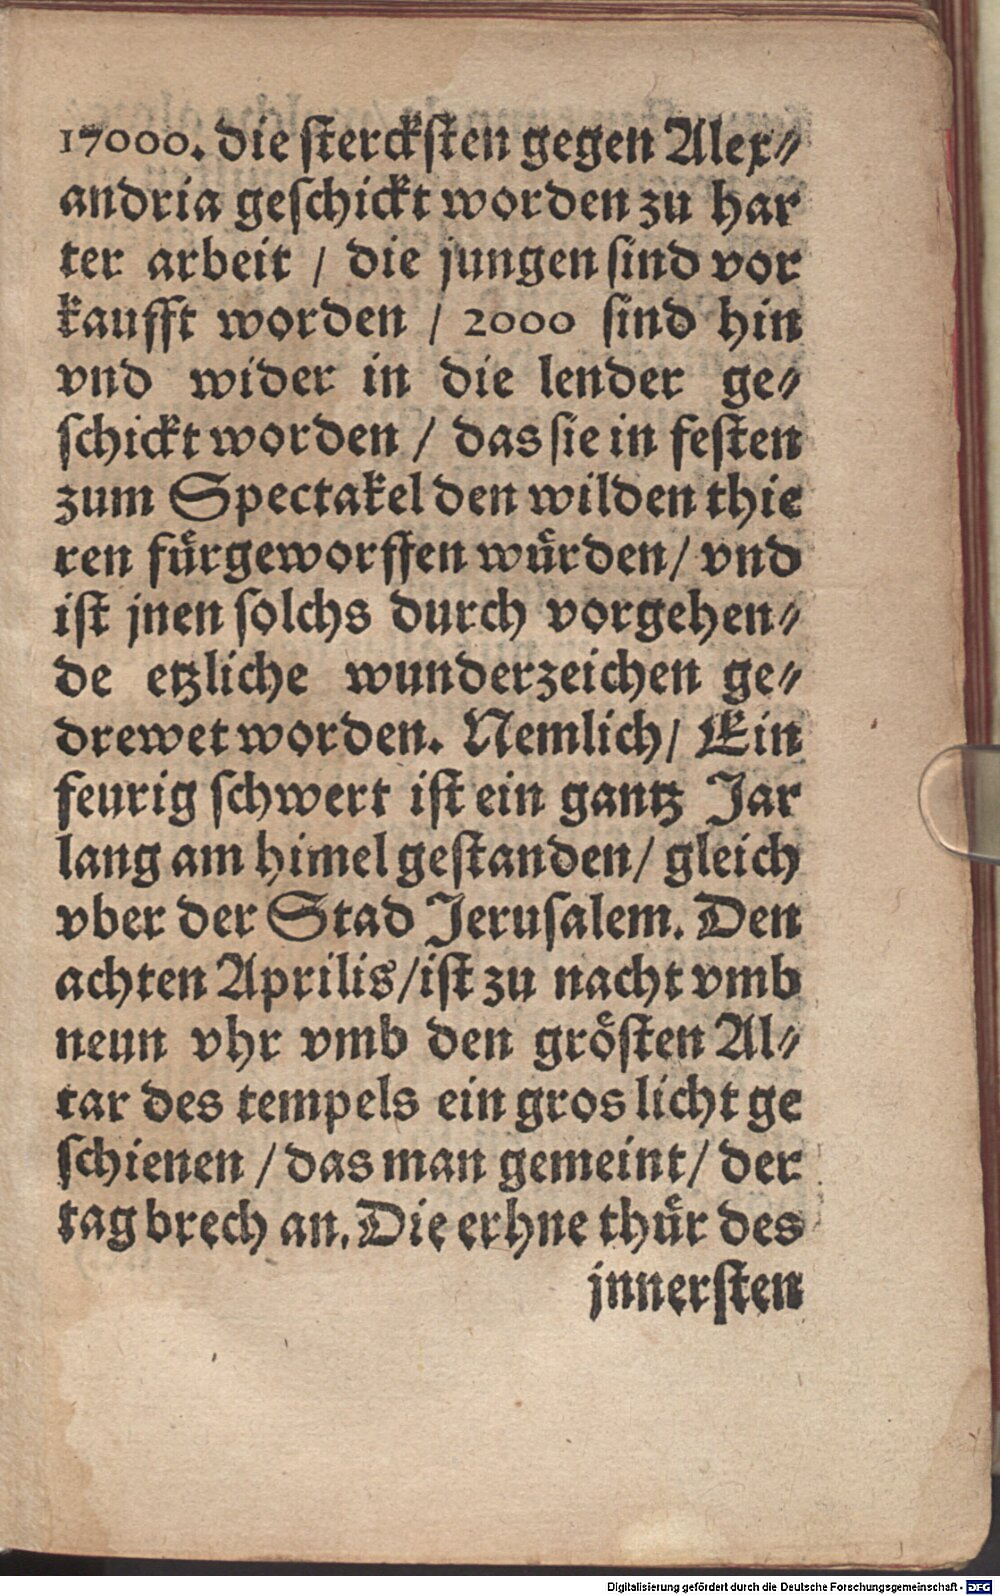 17000. die stercksten gegen Alex⸗
andria geschickt worden zu har
ter arbeit / die jungen sind vor
kaufft worden / 2000 sind hin
vnd wider in die lender ge⸗
schickt worden / das sie in festen
zum Spectakel den wilden thie
ren fuͤrgeworffen wuͤrden / vnd
ist jnen solchs durch vorgehen⸗
de etzliche wunderzeichen ge⸗
drewet worden. Nemlich / Ein
feurig schwert ist ein gantz Jar
lang am himel gestanden / gleich
vber der Stad Jerusalem. Den
achten Aprilis / ist zu nacht vmb
neun vhr vmb den groͤsten Al⸗
tar des tempels ein gros licht ge
schienen / das man gemeint / der
tag brech an. Die erhne thuͤr des
jnnersten
Digitalisierung gefördert durch die Deutsche Forschungsgemeinschaft - DFG